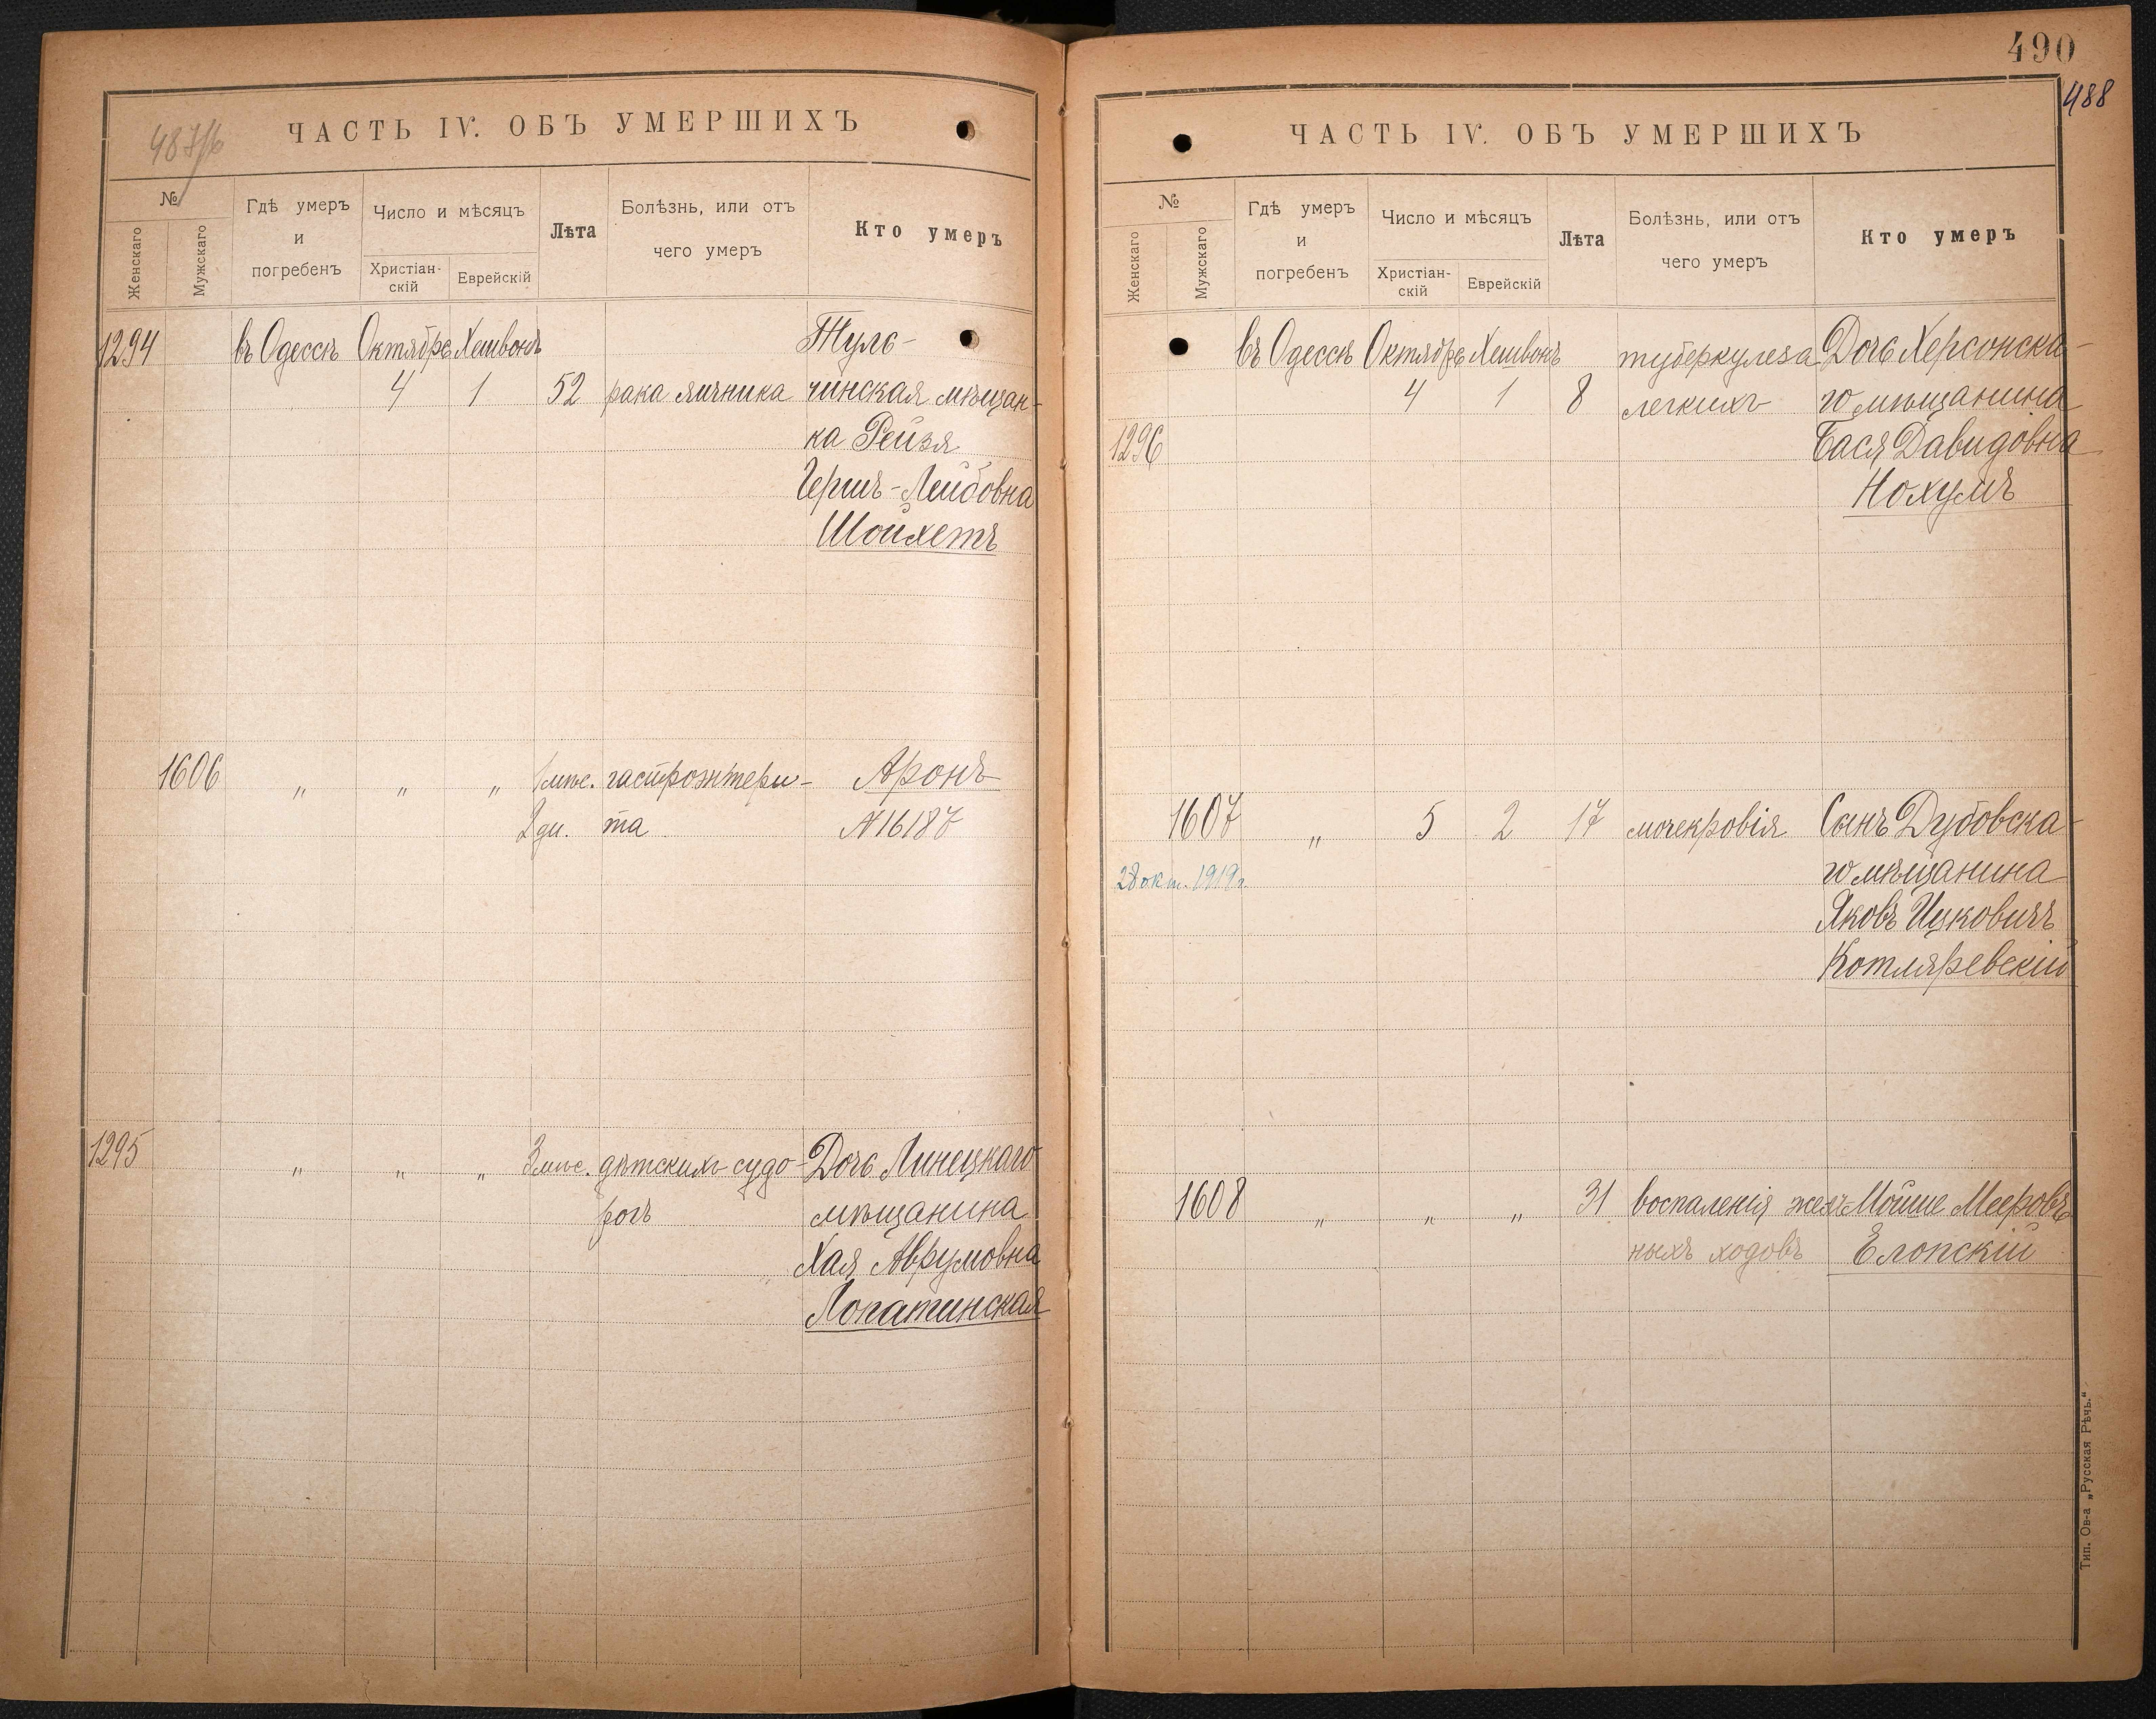 487/б
ЧАСТЬ IV. ОБЪ УМЕРШИХЪ
№
Женскаго
Мужскаго
Гдѣ умеръ
и
погребенъ
Число и мѣсяцъ
Христіан-
скій
Еврейскій
Лѣта
Болѣзнь, или отъ
чего умеръ
Кто умеръ
1294 въ Одессѣ Октябрь Хешвонъ Туль-
4 1 52 рака яичника чинская мѣщан-
ка Рейзя
Гершъ-Лейбовна
Шойхетъ
1606 " " " 1 мѣс. гастроэнтери- Аронъ
2 дн. та №16187
1295 " " " 3 мѣс. дѣтскихъ судо- Дочь Линецкаго
рогъ мѣщанина
Хая Аврумовна
Лопатинская
490
488
ЧАСТЬ IV. ОБЪ УМЕРШИХЪ
№
Женскаго
Мужскаго
Гдѣ умеръ
и
погребенъ
Число и мѣсяцъ
Христіан-
скій
Еврейскій
Лѣта
Болѣзнь, или отъ
чего умеръ
Кто умеръ
въ Одессѣ Октябрь Хешвонъ туберкулеза Дочь Херсонска-
4 1 8 легкихъ го мѣщанина
1296 Бася Давидовна
Нохумъ
1607 " 5 2 17 мочекровія Сынъ Дубовска-
28 окт. 1919 г. го мѣщанина
Яковъ Ицковичъ
Котляревскій
1608 " " " 31 воспаленія желч- Мойше Мееровъ
ныхъ ходовъ Елопскій
Тип. Ов-а „Русская Рѣчь."